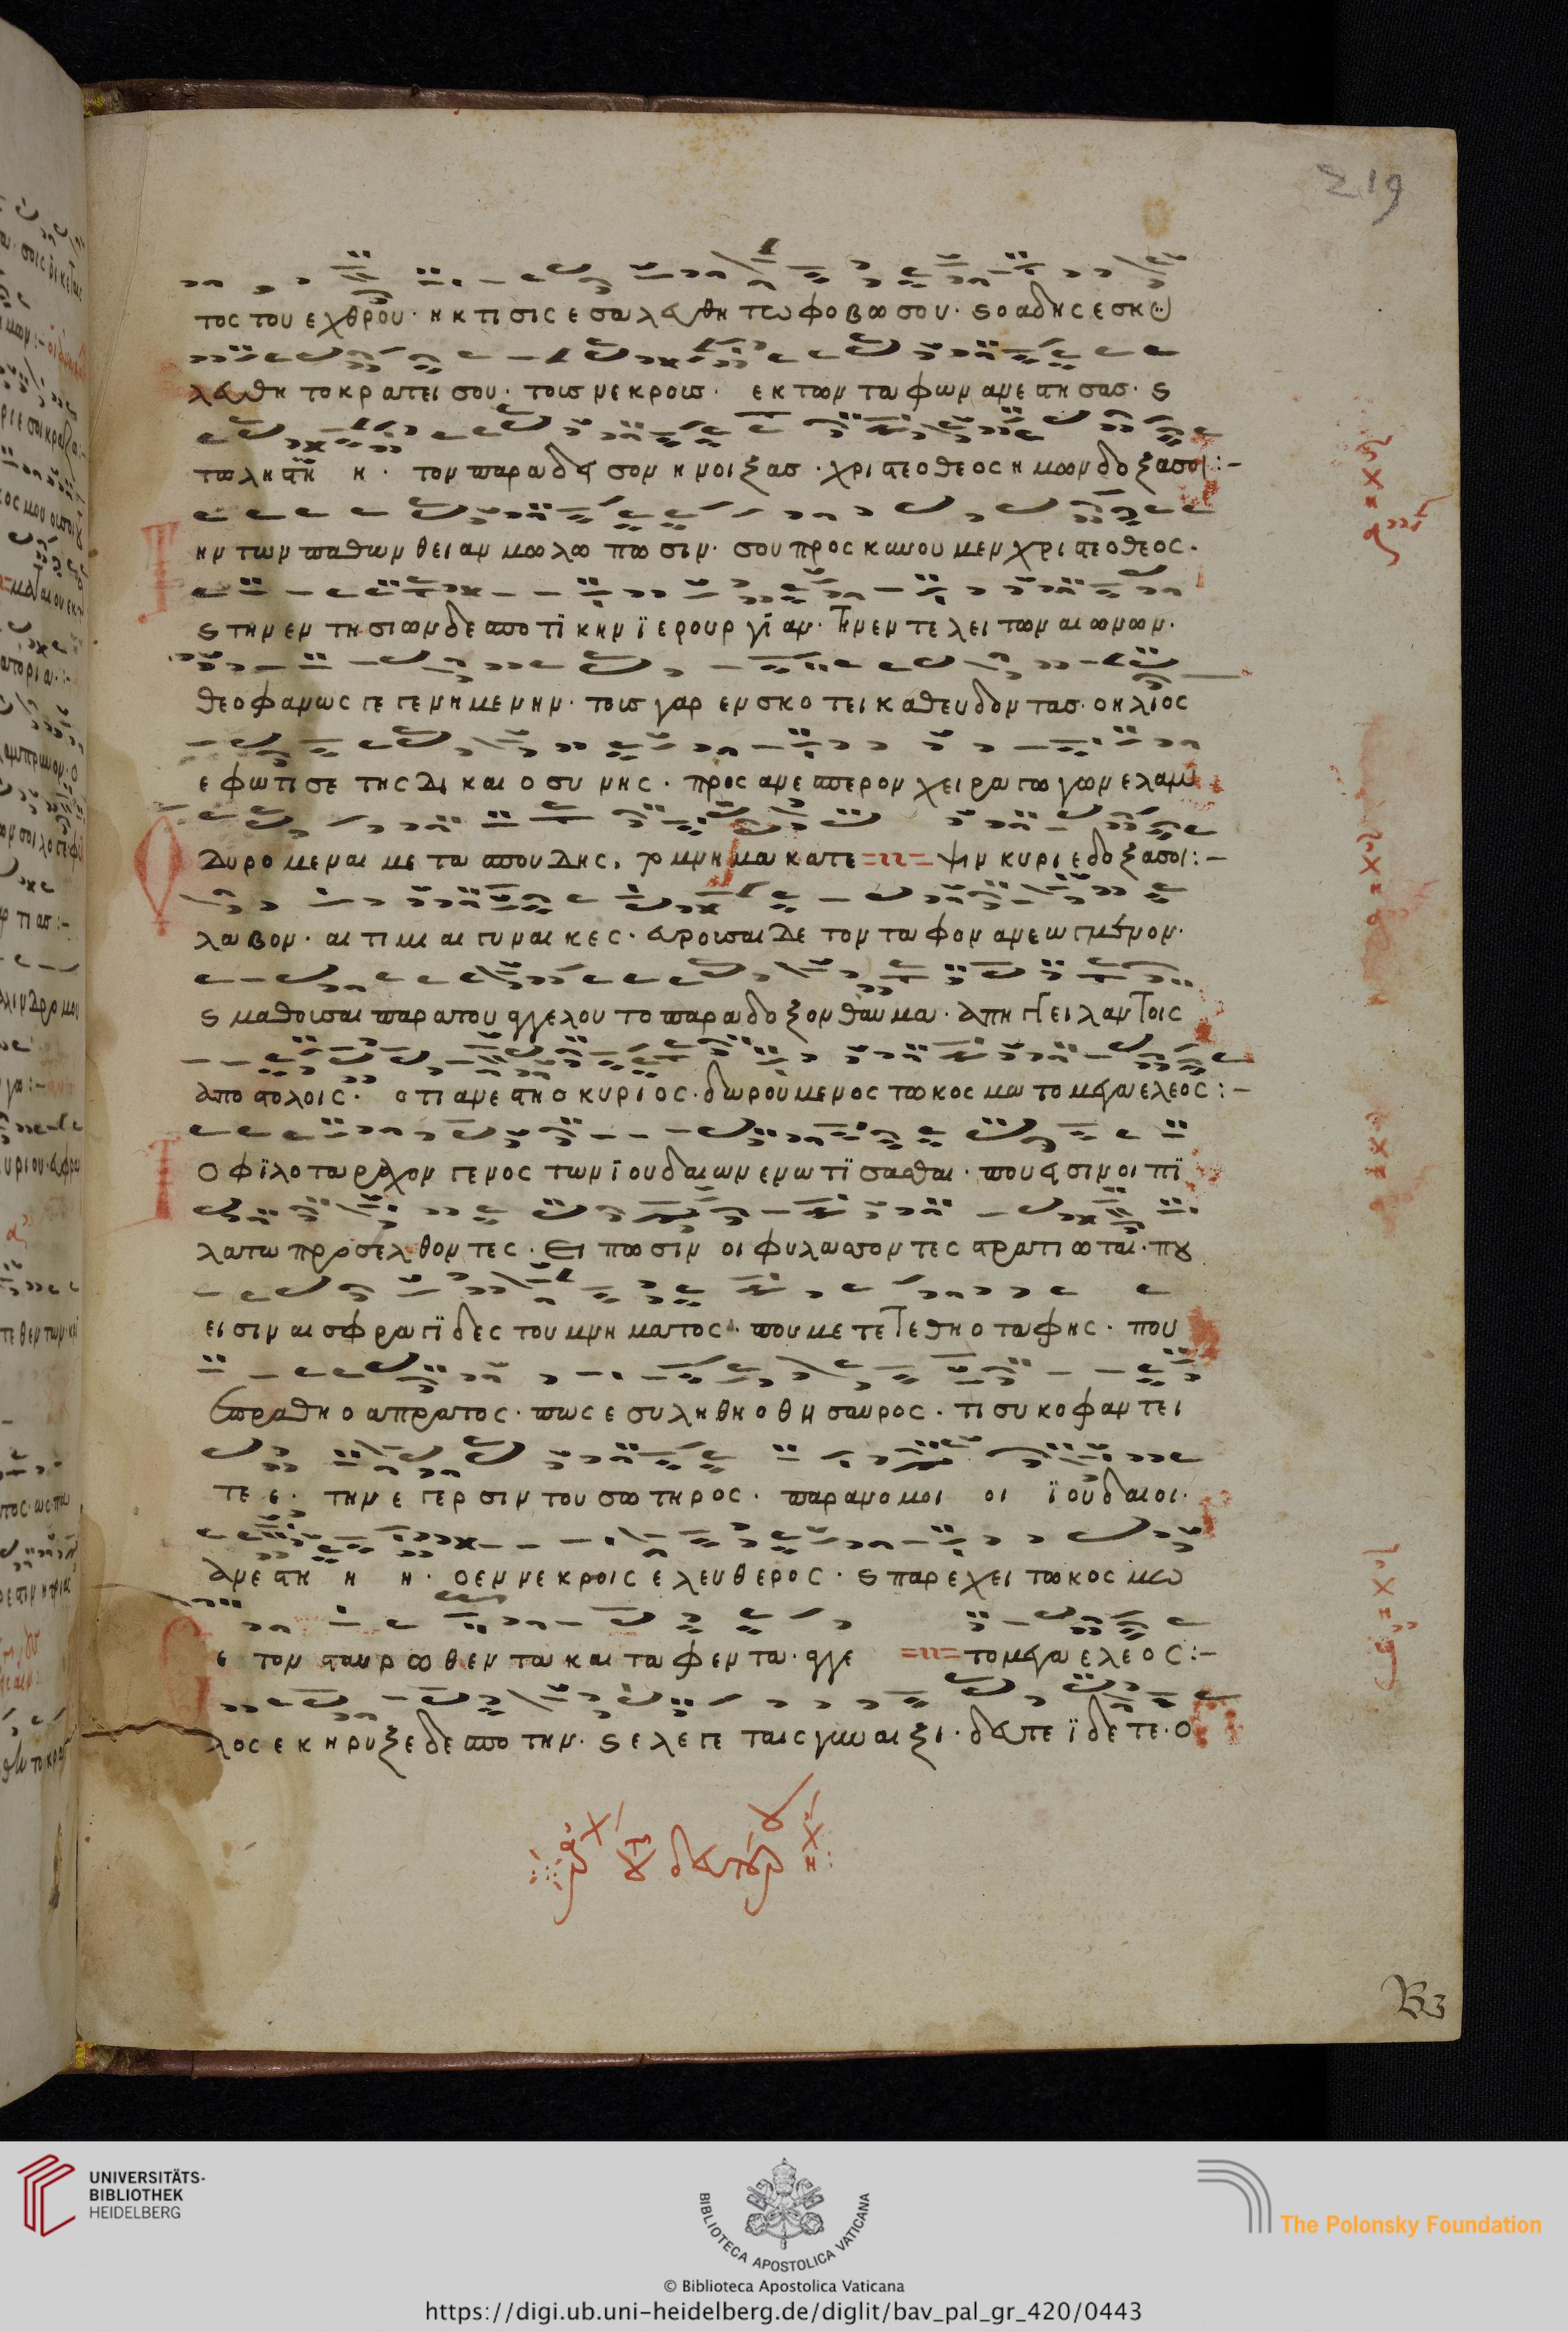 219
τος του εχθρου · η κτισις εσαλευθη τω φοβω σου · ϛ ο αδης εσκυ
λευθη τω κρατει σου · τους νεκρους · εκ των ταφων ανεστησας · ϛ
τω ληστη η · τον παραδεισον ηνοιξας · χριστε ο θεος ημων δοξα σοι :-
ην των παθων θειαν μωλωπωσιν · σου προσκυνουμεν χριστε ο θεος ·
ϛ την εν τη σιων δεσποτικην ϊερουργϊαν · την εν τελει των αιωνων ·
θεοφανως γεγενημενην · τους γαρ εν σκοτει καθευδοντας · ο ηλιος
εφωτισε της δικαιοσυνης · προς ανεσπερον χειραγωγων ελαμ
δυρομεναι μετα σπουδης, το μνημα κατε =ιι= ψιν κυριε δοξα σοι :-
λαβον · αι τιμιαι γυναικες · ευρουσαι δε τον ταφον ανεωγμενον ·
ϛ μαθουσαι παρα του αγγελου το παραδοξον θαυμα · απηγγειλαν τοις
αποστολοις · οτι ανεστη ο κυριος · δωρουμενος τω κοσμω το μεγα ελεος :-
Ιο φϊλοταραχον γενος των ϊουδαιων ενωτϊσασθαι · που εισιν οι πϊ
λατω προσελθοντες · Ειπωσιν οι φυλασσοντες στρατιωται · που
εισιν αι σφραγϊδες του μνηματος · που μετετεθη ο ταφης · που
επραθη ο απρατος · πως εσυληθη ο θησαυρος · τι συκοφαντει
τε ε · την εγερσιν του σωτηρος · παρανομοι οι ϊουδαιοι ·
ανεστη η η · ο εν νεκροις ελευθερος · ϛ παρεχει τω κοσμω
ε τον σταυρωθεντα και ταφεντα · αγγε =ιι= το μεγα ελεος :-
λος εκηρυξε δεσποτην · ϛ ελεγε ταις γυναιξι · δευτε ϊδετε · ο
R3
UNIVERSITÄTS-
BIBLIOTHEK
HEIDELBERG
BIBLIOTECA APOSTOLICA VATICANA
The Polonsky Foundation
© Biblioteca Apostolica Vaticana
https://digi.ub.uni-heidelberg.de/diglit/bav_pal_gr_420/0443